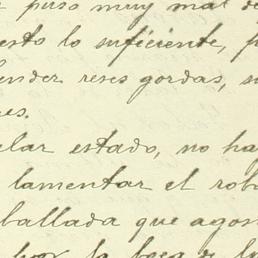 puso muy mal de
esto lo suficiente, p
ender reses gordas, su
es.
lar estado, no ha
lamentar el rob
ballada que agost
por la boca de l